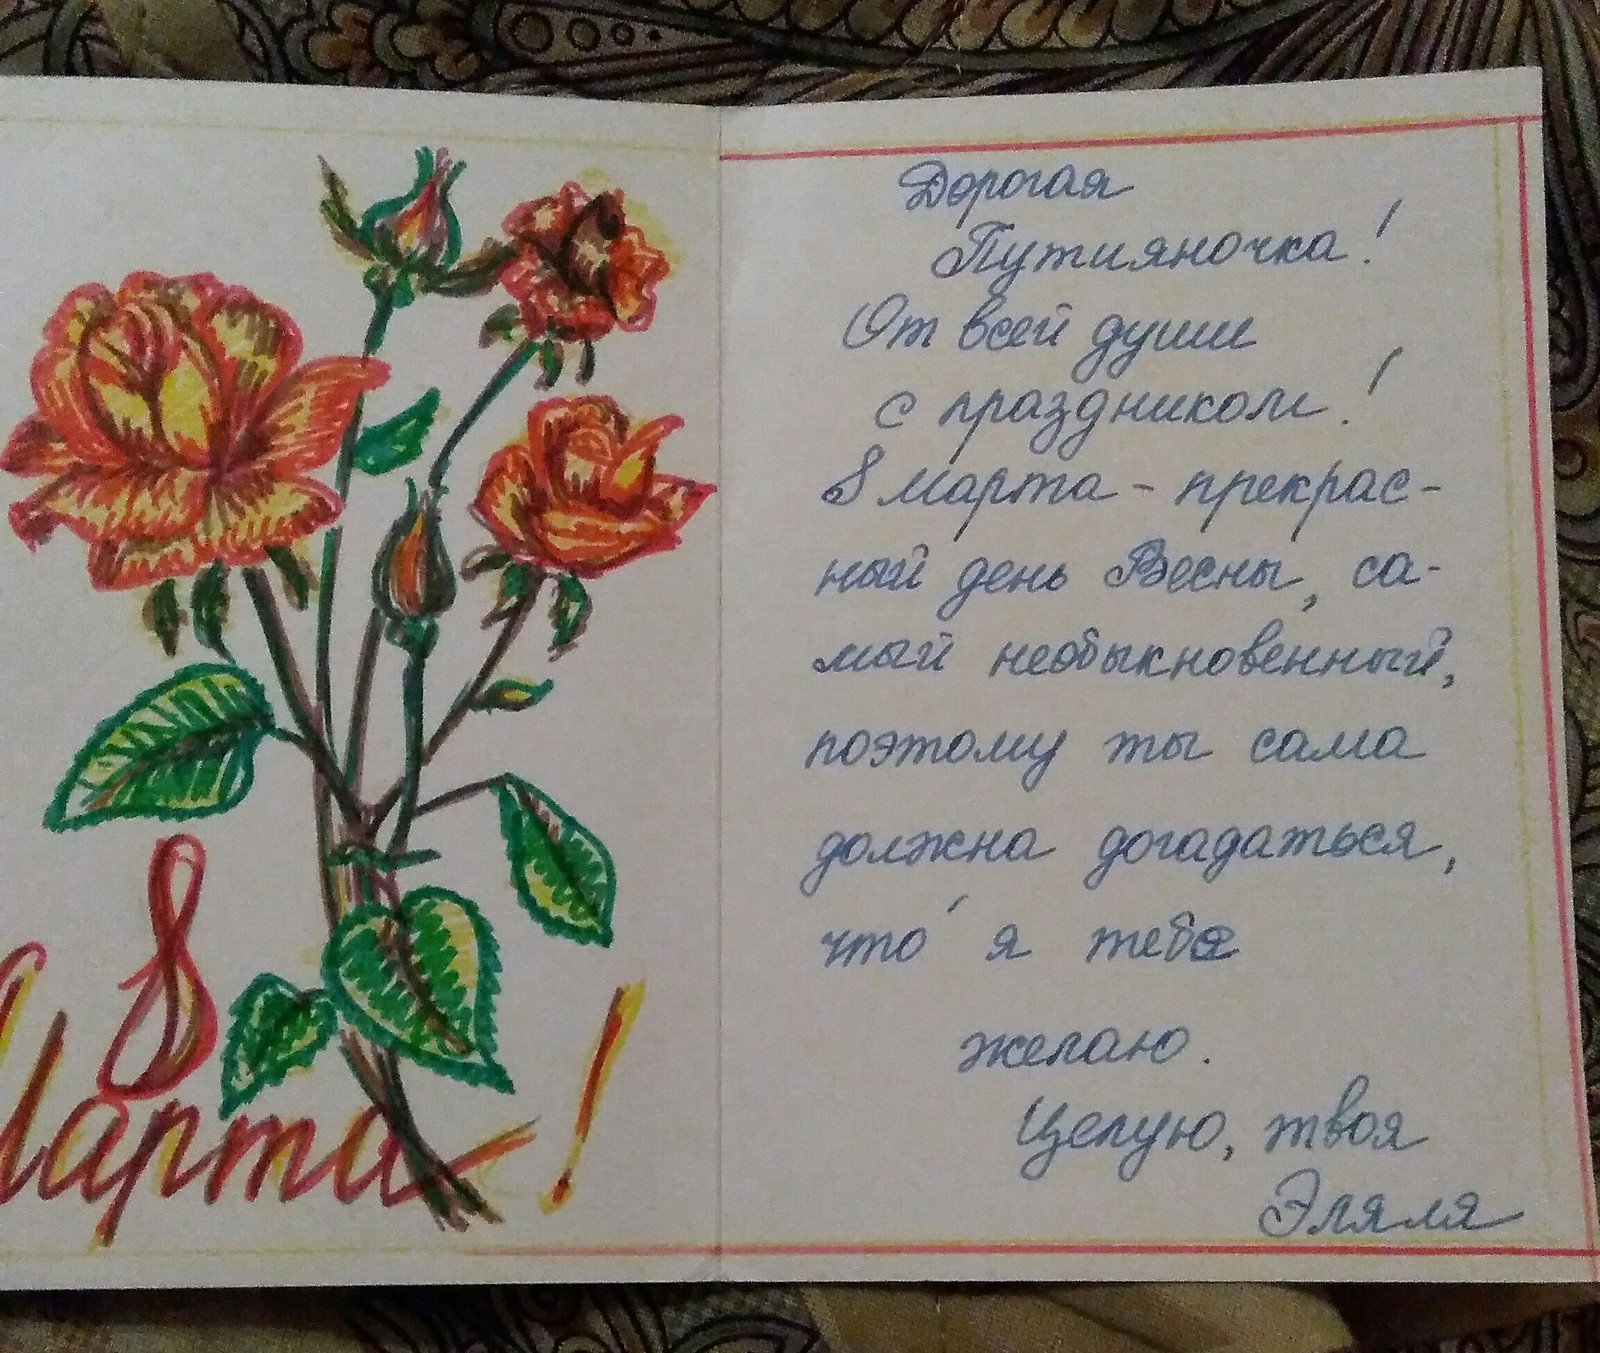 8
Марта!
Дорогая
Путияночка!
От всей души
с праздником!
8 марта - прекрас-
ный день Весны, са-
мый необыкновенный,
поэтому ты сама
должна догадаться,
что́ я тебе
желаю.
Целую, твоя
Эляля